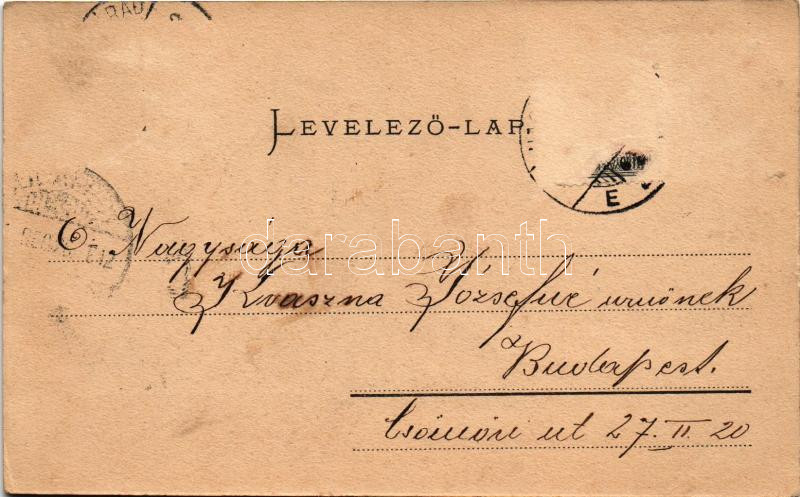 RAD
LEVELEZŐ-LAP
E
Ő Nagysága
Kvaszna Józsefné urnőnek
Budapest.
Csömöri ut 27. II. 20
darabanth